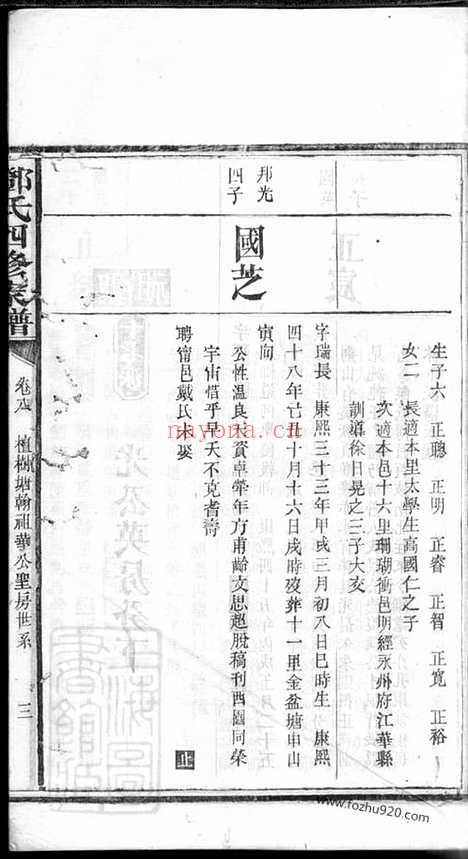 生子六 正聰 正明 正睿 正智 正寬 正裕
女二 長適本里太學生高國仁之子
次適本邑十六里珊瑚衝邑明經永州府江華縣
訓道徐日晃之三子大亥
邦光
四子
國芝
字瑞長 康熙三十三年甲戌三月初八日巳時生 康熙
四十八年己丑十月十六日戌時歿葬十一里金盆塘申山
寅向
公性溫良天資卓犖年方甫齡文思超脫稿刊西園同榮
宇宙惜乎早夭不克耆壽
聘甯邑戴氏未娶
鄧氏四修家譜
卷八
植槐塘翰祖華公聖房世系
三
nayona.cn
www.fozhu920.com